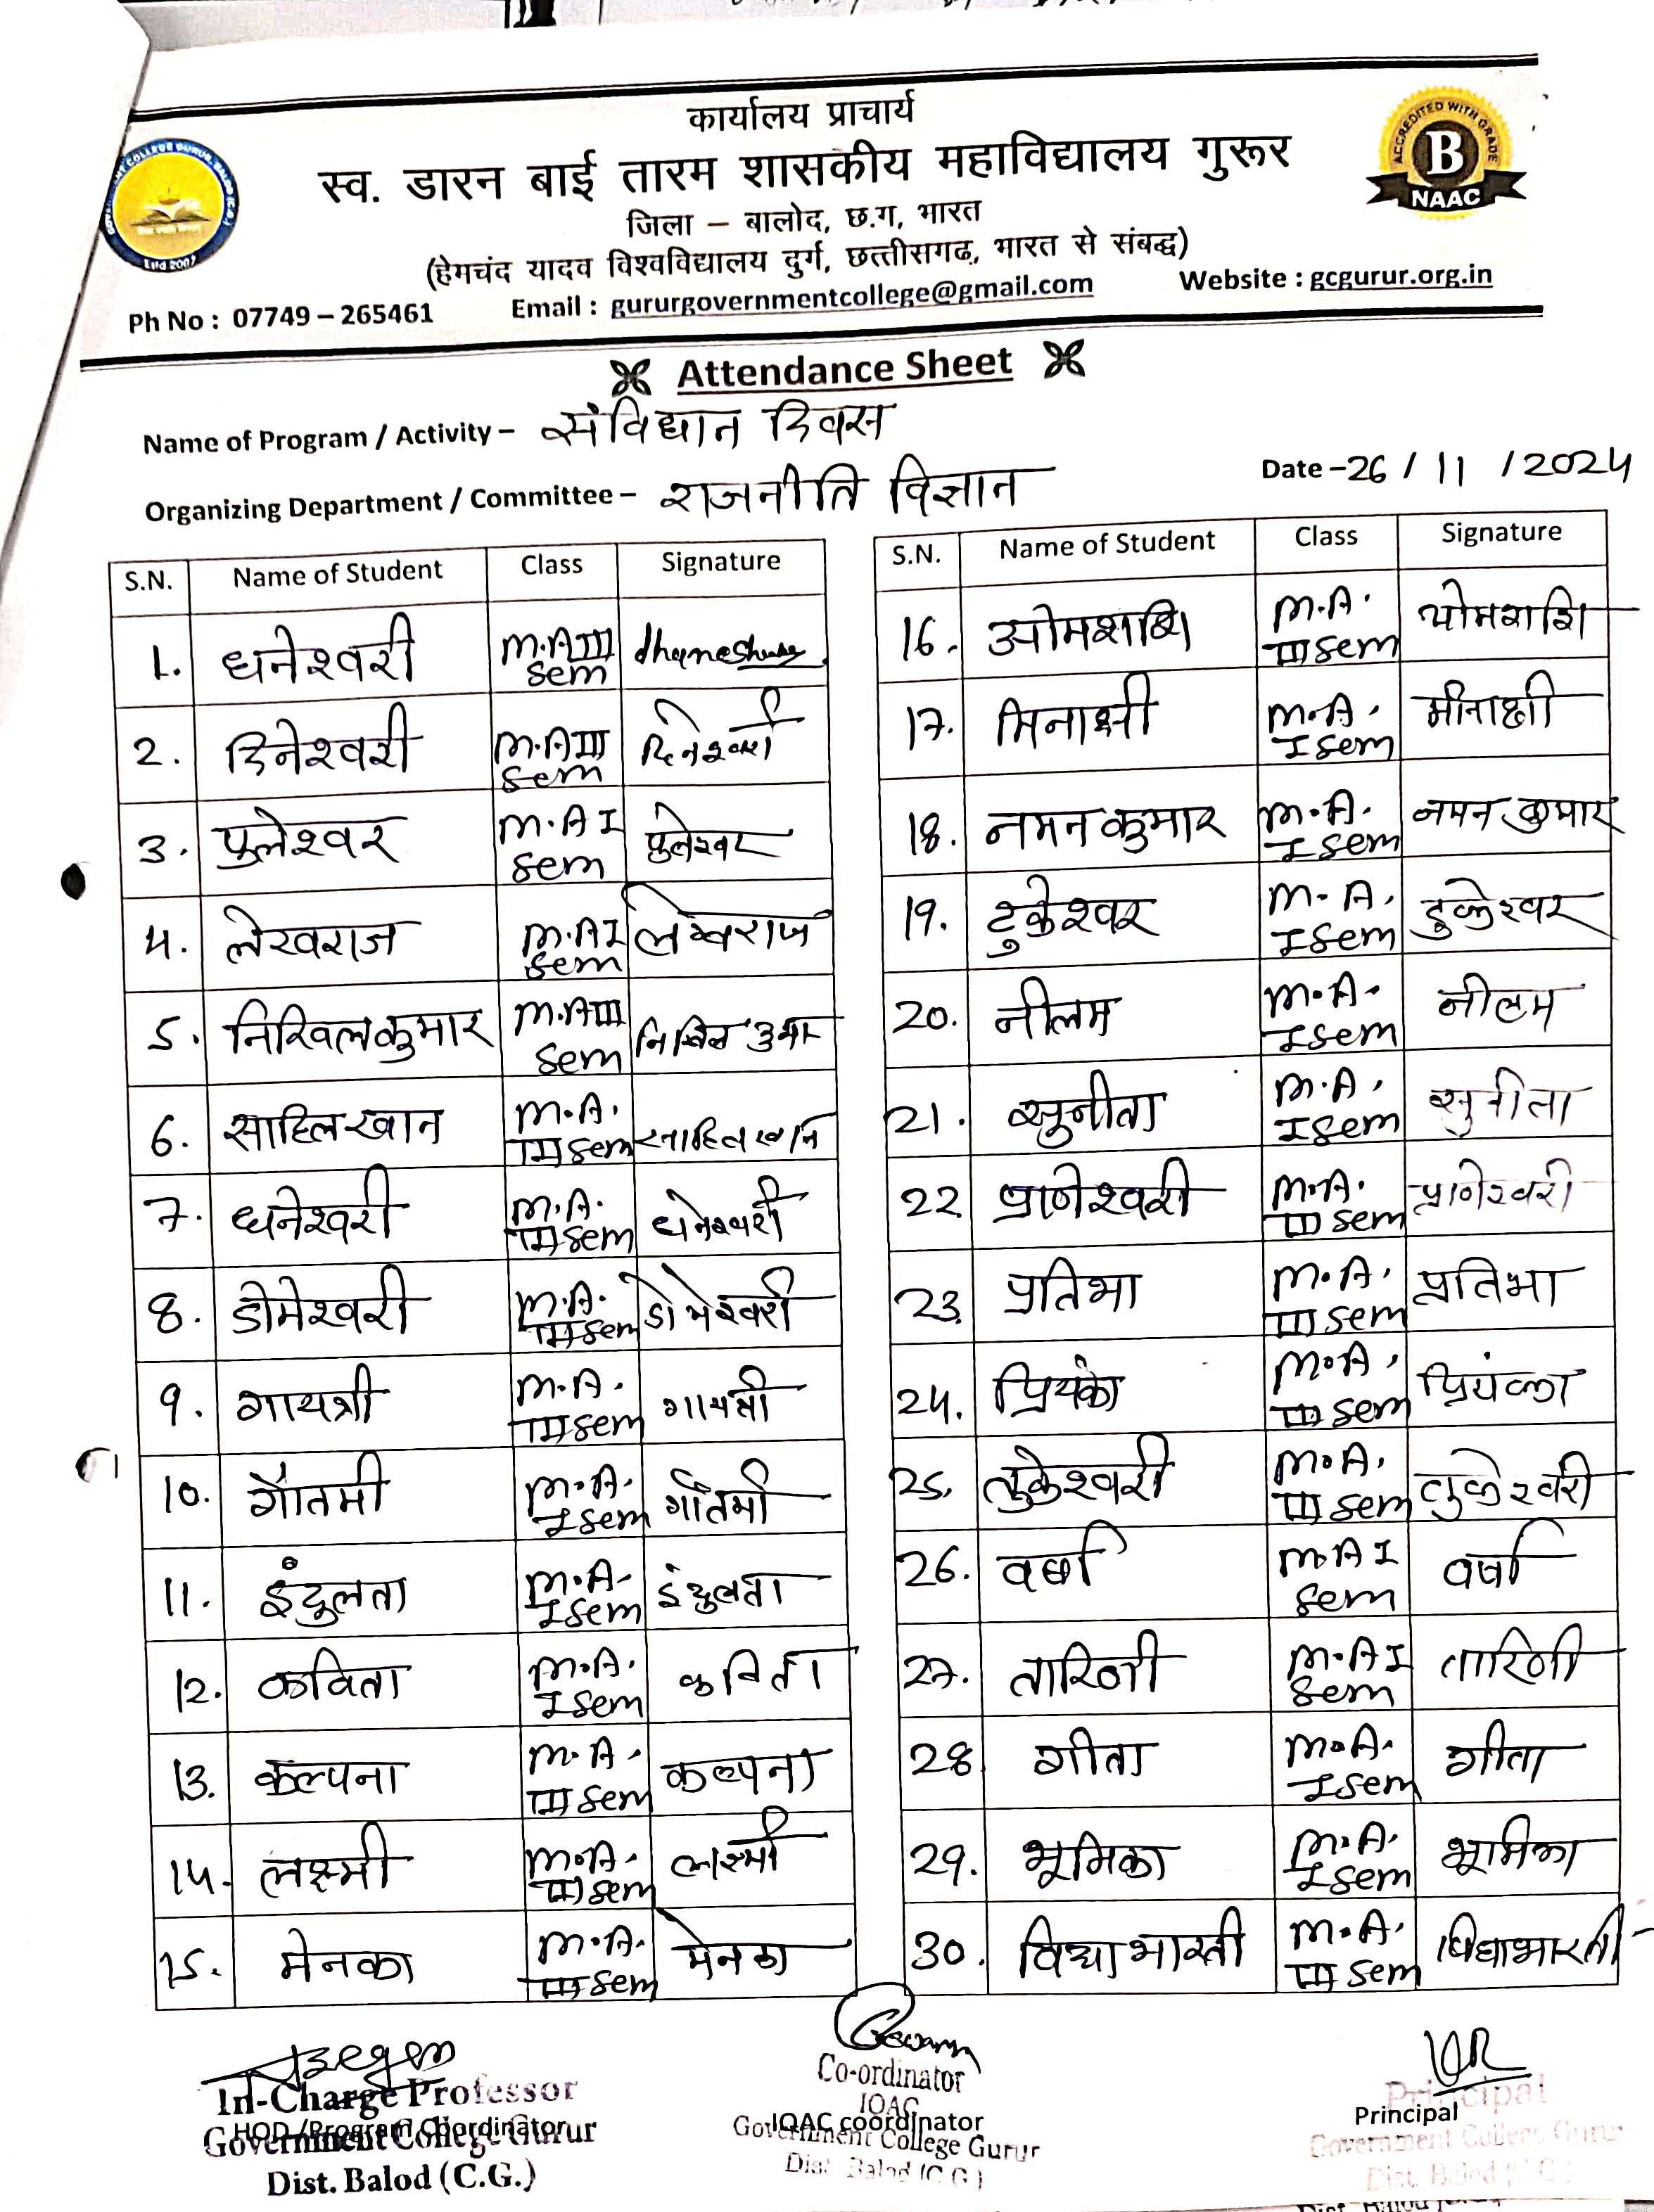 कार्यालय प्राचार्य
स्व. डारन बाई तारम शासकीय महाविद्यालय गुरूर
जिला – बालोद, छ.ग, भारत
(हेमचंद यादव विश्वविद्यालय दुर्ग, छत्तीसगढ़, भारत से संबद्ध)
Ph No : 07749 – 265461 Email : gururgovernmentcollege@gmail.com Website : gcgurur.org.in
ACCREDITED WITH GRADE
B
NAAC
Estd 2007
Attendance Sheet
Name of Program / Activity – संविधान दिवस
Organizing Department / Committee – राजनीति विज्ञान Date – 26 / 11 / 2024
S.N. Name of Student Class Signature
1. धनेश्वरी M.A III Sem dhaneshwari
2. दिनेश्वरी M.A III Sem दिनेश्वरी
3. फुलेश्वर M.A I Sem फुलेश्वर
4. लेखराज M.A I Sem लेखराज
5. निखिल कुमार M.A III Sem निखिल कुमार
6. साहिल खान M.A. III Sem साहिल खान
7. धनेश्वरी M.A. III Sem धनेश्वरी
8. डोमेश्वरी M.A. III Sem डोमेश्वरी
9. गायत्री M.A. III Sem गायत्री
10. गौतमी M.A. I Sem गौतमी
11. इंदुलता M.A. I Sem इंदुलता
12. कविता M.A. I Sem कविता
13. कल्पना M.A. III Sem कल्पना
14. लक्ष्मी M.A. III Sem लक्ष्मी
15. मेनका M.A. III Sem मेनका
S.N. Name of Student Class Signature
16. ओमशशि M.A. III Sem ओमशशि
17. मिनाक्षी M.A. I Sem मीनाक्षी
18. नमन कुमार M.A. I Sem नमन कुमार
19. टुकेश्वर M.A. I Sem टुकेश्वर
20. नीलम M.A. I Sem नीलम
21. सुनीता M.A. I Sem सुनीता
22. प्राणेश्वरी M.A. III Sem प्राणेश्वरी
23. प्रतिभा M.A. III Sem प्रतिभा
24. प्रियंका M.A. III Sem प्रियंका
25. लुकेश्वरी M.A. III Sem लुकेश्वरी
26. वर्षा M.A I Sem वर्षा
27. तारिणी M.A I Sem तारिणी
28 गीता M.A. I Sem गीता
29. भूमिका M.A. I Sem भूमिका
30. विद्या भारती M.A. III Sem विद्याभारती
In-Charge Professor
HOD /Program Coordinator
Government College Gurur
Dist. Balod (C.G.)
Co-ordinator
IQAC
IQAC coordinator
Government College Gurur
Dist. Balod (C.G.)
Principal
Principal
Government College Gurur
Dist. Balod (C.G.)